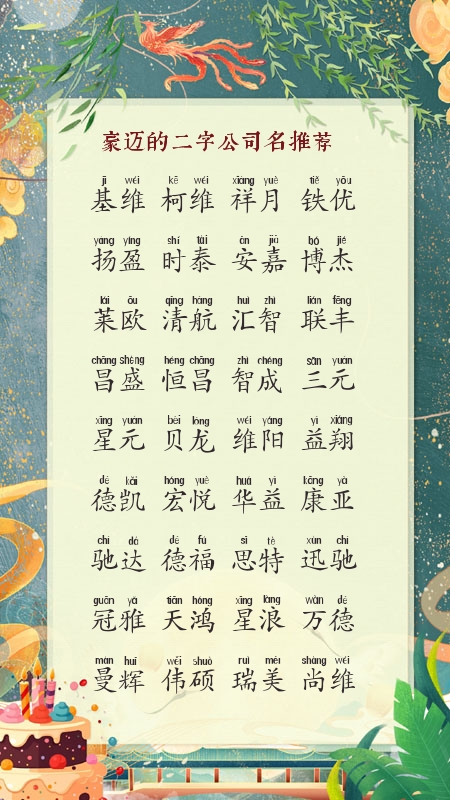 豪迈的二字公司名推荐
jī wéi kē wéi xiáng yuè tiě yōu
基维 柯维 祥月 铁优
yáng yíng shí tài ān jiā bó jié
扬盈 时泰 安嘉 博杰
lái ōu qīng háng huì zhì lián fēng
莱欧 清航 汇智 联丰
chāng shèng héng chāng zhì chéng sān yuán
昌盛 恒昌 智成 三元
xīng yuán bèi lóng wéi yáng yì xiáng
星元 贝龙 维阳 益翔
dé kǎi hóng yuè huá yì kāng yà
德凯 宏悦 华益 康亚
chí dá dé fú sī tè xùn chí
驰达 德福 思特 迅驰
guān yǎ tiān hóng xīng làng wàn dé
冠雅 天鸿 星浪 万德
màn huī wěi shuò ruì měi shàng wéi
曼辉 伟硕 瑞美 尚维